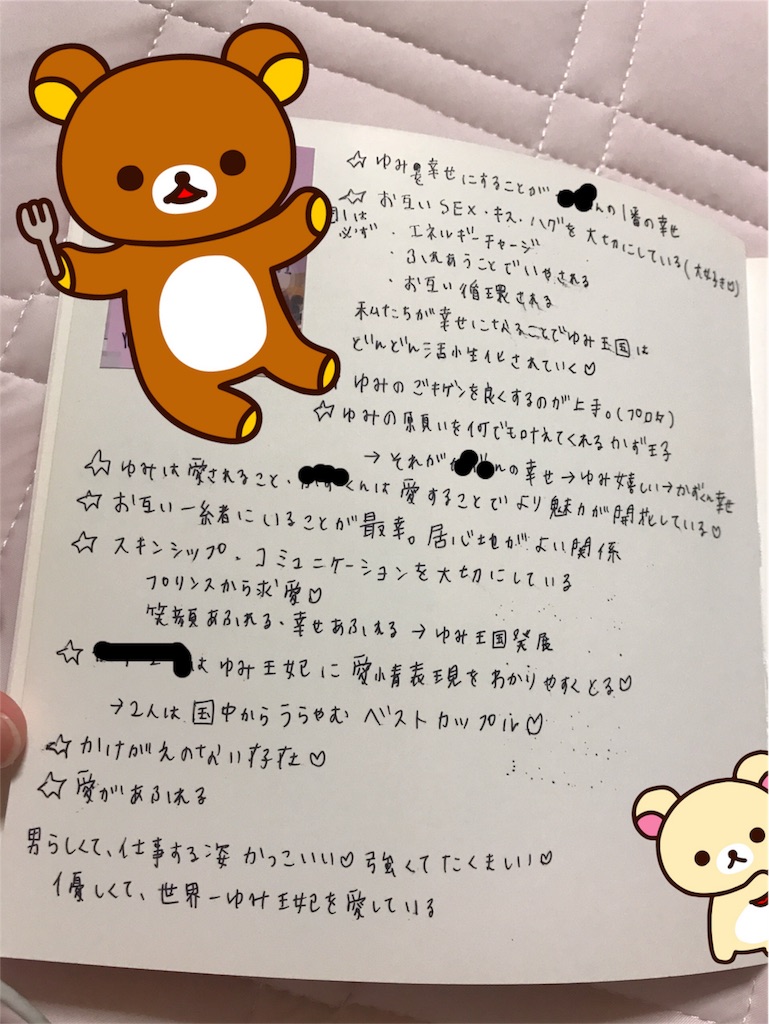 ☆ ゆみを幸せにすることが んの1番の幸せ
☆ お互いSEX・キス・ハグを大切にしている(大好き♡)
1は必ず
・エネルギーチャージ
・ふれあうことでいやされる
・お互い循環される
私たちが幸せになることでゆみ王国は
どんどん活性化されていく♡
ゆみのごキゲンを良くするのが上手。(プロ級)
☆ ゆみの願いを何でも叶えてくれるかず王子
→ それが んの幸せ→ゆみ嬉しい→かずくん幸せ
☆ ゆみは愛されること、 くんは愛することでより魅力が開花している♡
☆ お互い一緒にいることが最幸。居心地がよい関係
☆ スキンシップ・コミュニケーションを大切にしている
プリンスから求愛♡
笑顔あふれる・幸せあふれる → ゆみ王国発展
☆ はゆみ王妃に愛情表現をわかりやすくとる♡
→2人は国中からうらやむ ベストカップル♡
☆ かけがえのない存在♡
☆ 愛があふれる
男らしくて、仕事する姿かっこいい♡ 強くてたくましい♡
優しくて、世界一ゆみ王妃を愛している